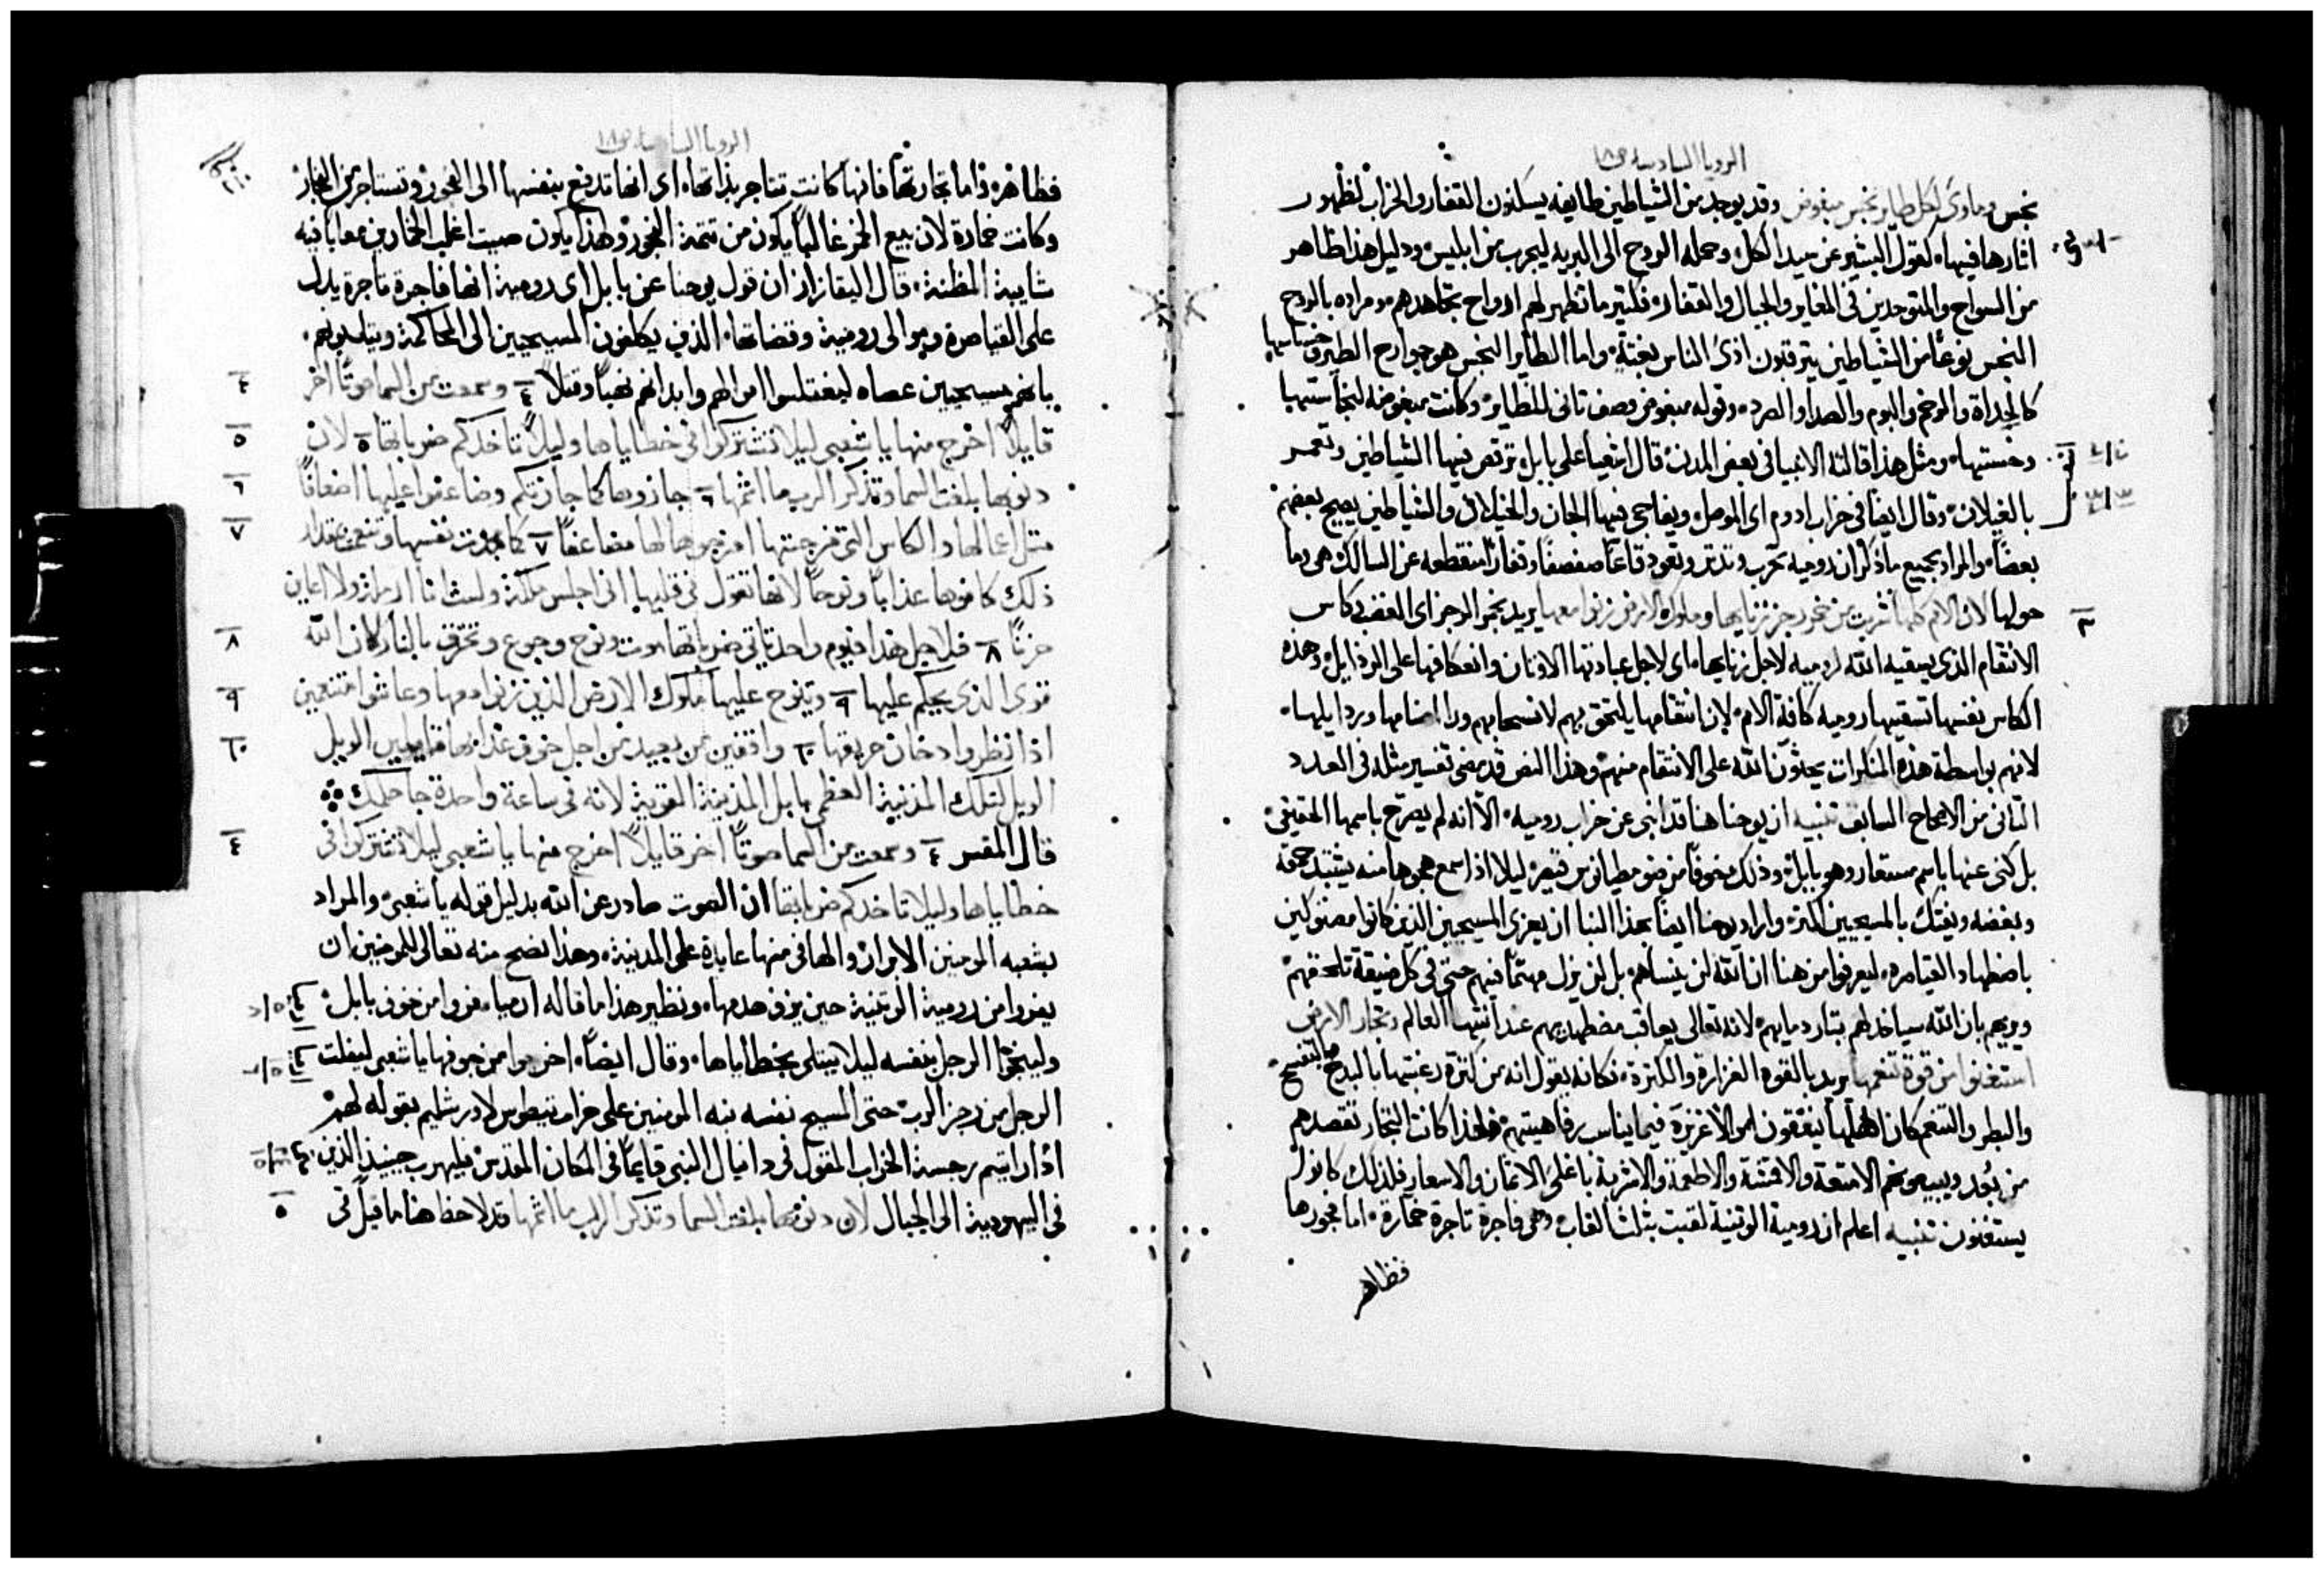 الرويا السادسة ص١٨
نجس وماوى لكل طاير نجس مبغوض وقد يوجد من الشياطين طايفه يسكنون القفار والخراب لظهور
اثارها فيها، لقول البشير عن سيد الكل، وحمله الروح الى البريه ليجرب من ابليس، ودليل هذا ظاهر
من السواح والمتوحدين في المغاير والجبال والقفار، فكثير ما تظهر لهم ارواح تجاهدهم، ومراده بالروح
النجس نوعاً من الشياطين يترقبون اذى الناس بغتةً، واما الطاير النجس هو جوارح الطير
كالحداة والرخم والبوم والصدا والصرد، وقوله مبغوض وصف ثاني للطاير، وكانت مبغوضه لنجاستها
وخستها، ومثل هذا قالته الانبيا في بعض المدن، قال اشعيا على بابل ترقص فيها الشياطين وتعمر
بالغيلان، وقال ايضاً في خراب ادوم اي الموصل ويفاجي فيها الجان والخيلاق والشياطين يصيح بعضهم
بعضاً، والمراد بجميع ما ذكر ان رومية تخرب وتدثر وتعود قاعاً صفصفاً وقفاراً منقطعه عن السالك هي وما
٣
حولها لان الامم كلها شربت من خمر رجز زنايها وملوك الارض زنوا معها يريد بخمر الرجز اي الغضب كاس
الانتقام الذي يسقيه الله لرومية لاجل زنايها، اي لاجل عبادتها الاوثان وانعكافها على الرذايل، وهذه
الكاس نفسها تسقيها رومية كافة الامم، لان انتقامها يلتحق بهم لانسحابهم ورا اصنامها ورذايلها،
لانهم بواسطة هذه المنكرات يحثون الله على الانتقام منهم، وهذا النص قد مضى تفسير مثله في العدد
الثاني من الاصحاح السابق تنبيه ان يوحنا هنا قد انبى عن خراب رومية، الّا انه لم يصرّح باسمها الحقيقي
بل كنى عنها باسم مستعار وهو بابل، وذلك خوفاً من دومطيانوس قيصر، ليلا اذا سمع هجوها منه يشتد حمقه
وبغضه ويفتك بالمسيحيين اكثر، واراد يوحنا ايضاً بهذا النبا ان يعزي المسيحيين الذين كانوا مضنوكين
باضطهاد القياصرة، ليعرفوا من هنا ان الله لن ينساهم بل لن يزل مهتماً فيهم حتى في كل ضيقة تلحقهم
ويريهم بان الله سياخذ لهم بثار دمايهم، لانه تعالى يعاقب مضطهديهم عند انتها العالم وتجار الارض
استغنوا من قوة تنعمها يريد بالقوه الغزارة والكثرة، فكانه يقول انه من كثرة رغبتها بالبذخ
والبطر والتنعم كان اهلها ينفقون اموالاً غزيرة فيما يناسب رفاهيتهم، فلهذا كانت التجار تقصدهم
من بُعد ويبيعونهم الامتعة والاقمشة والاطعمة والاشربة باغلى الاثمان والاسعار، فلذلك كانوا
يستغنون تنبيه اعلم ان رومية الوثنية لقبت بثلث القاب، وهي فاجرة تاجرة خمّارة، اما فجورها
فظاهر
الرويا السادسة ص١٨
٢١٠
فظاهر، واما تجارتها، فانها كانت تتاجر بذاتها، اي انها تدفع بنفسها الى الفجور، وتستاجر من الفجار
وكانت خمارة لان بيع الخمر غالباً يكون من تتمة الفجور، ولهذا يكون صيت اغلب الخمارين معاباً فيه
شايبة المظنة، قال البقاز ان قول يوحنا عن بابل اي رومية انها فاجرة تاجرة يدل
على القياصرة وموالي رومية وقضاتها، الذين يكلفون المسيحيين الى المحاكمة ويثلبونهم،
بانهم مسيحيين عصاه ليختلسوا اموالهم وابدانهم نهباً وقتلاً ٤ وسمعت من السما صوتاً اخر
٤
قايلاً اخرج منها يا شعبي ليلا تشتركوا في خطاياها وليلا تاخذكم ضرباتها ٥ لان
٥
ذنوبها بلغت السما وتذكر الرب ما اثمها ٦ جازوها كما جازتكم وضاعفوا عليها اضعافاً
٦
مثل اعمالها والكاس التي مزجتها امزجوها لها مضاعفاً ٧ كما مجدت نفسها وتنعمت بقدر
٧
ذلك كافوها عذاباً ونوحاً لانها تقول في قلبها اني اجلس ملكة ولست انا ارملة ولا اعاين
حزناً ٨ فلاجل هذا في يوم واحد تاتي ضرباتها موت ونوح وجوع وتحرق بالنار لان الله
٨
قوي الذي يحكم عليها ٩ وينوح عليها ملوك الارض الذين زنوا معها وعاشوا متنعمين
٩
اذا نظروا دخان حريقها ١٠ واقفين من بعيد من اجل خوف عذابها قايلين الويل
١٠
الويل لتلك المدينة العظمى بابل المدينة القوية لانه في ساعة واحدة جا حكمك
قال المفسر ٤ وسمعت من السما صوتاً اخر قايلاً اخرج منها يا شعبي ليلا تشتركوا في
٤
خطاياها وليلا تاخذكم ضرباتها ان الصوت صادر عن الله بدليل قوله يا شعبي، والمراد
بشعبه المومنين الابرار، والها في منها عايدة على المدينة، وهذا نصح منه تعالى للمومنين ان
يفروا من رومية الوثنية حين يزف هدمها، ونظير هذا ما قاله ارميا، فروا من خوف بابل،
ولينجوا الرجل بنفسه ليلا يبتلى بخطاياها، وقال ايضاً، اخرجوا من جوفها يا شعبي ليفلت
الرجل من رجز الرب، حتى المسيح نفسه نبه المومنين على خراب تيطوس لاورشليم بقوله لهم،
اذا رايتم رجسة الخراب المقول في دانيال النبي قايماً في المكان المقدس، فليهرب حينيذ الذين
في اليهودية الى الجبال لان ذنوبها بلغت السما وتذكر الرب ما اثمها قد لاحظ هنا ما قيل في
٥